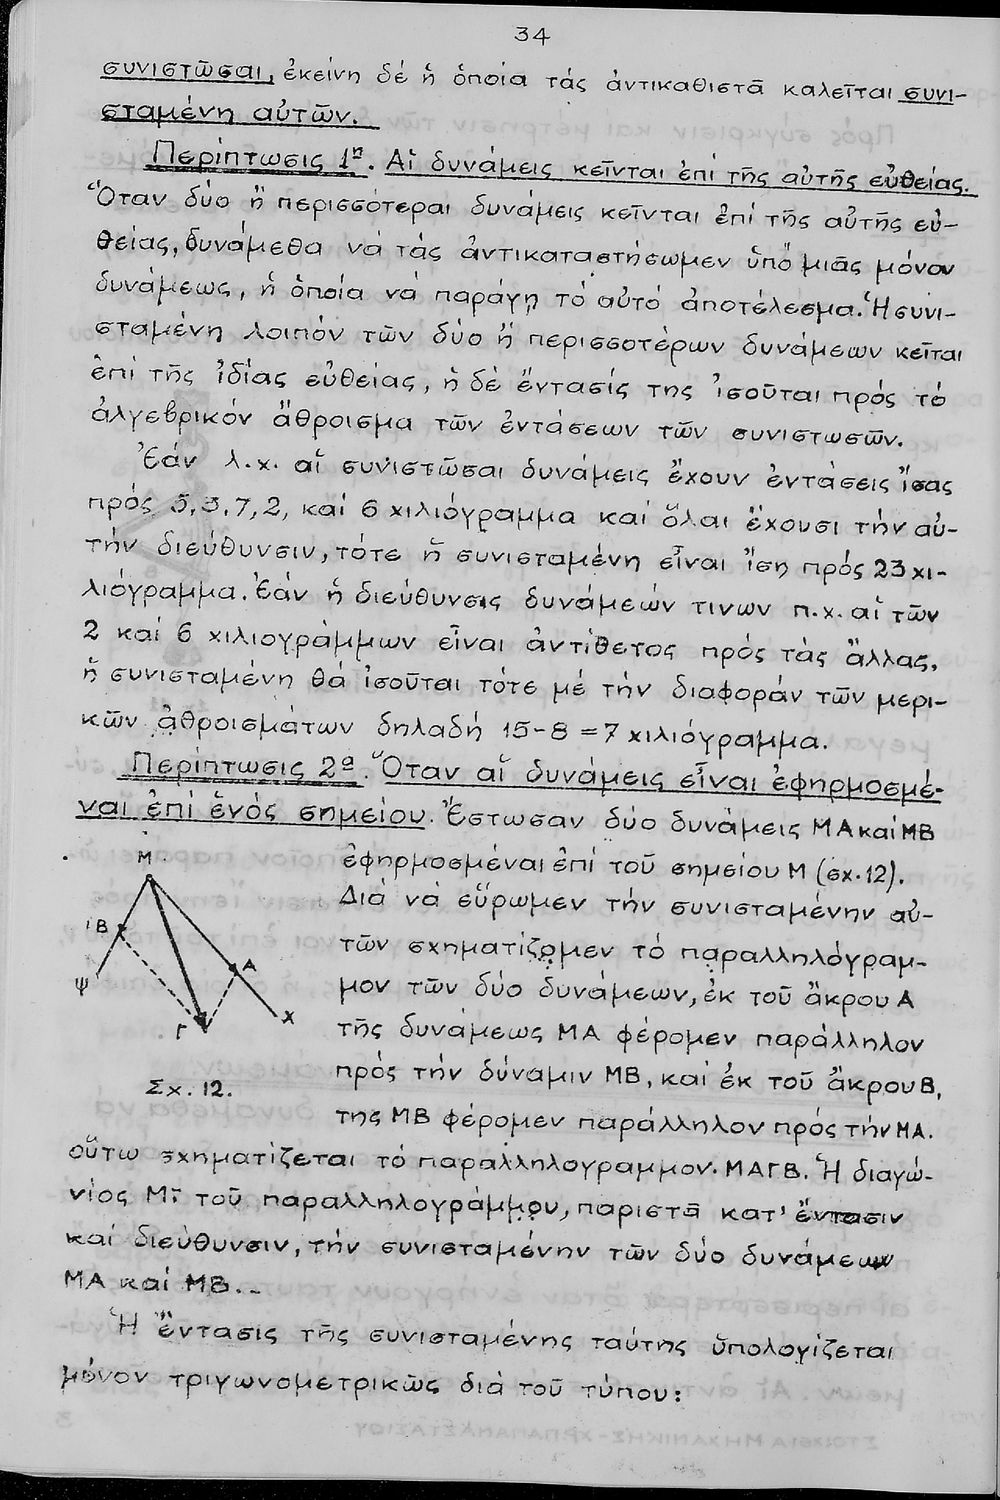 34
συνιστῶσαι, ἐκείνη δέ ἥ ὁποία τάς ἀντικαθιστᾶ καλεῖται συνι-
σταμένη αὐτῶν.
Περίπτωσις 1η. Αἱ δυνάμεις κεῖνται ἐπί τῆς αὐτῆς εὐθείας.
Ὅταν δύο ἤ περισσότεραι δυνάμεις κεῖνται ἐπί τῆς αὐτῆς εὐ-
θείας, δυνάμεθα νά τάς ἀντικαταστήσωμεν ὑπό μιᾶς μόνον
δυνάμεως, ἡ ὁποία νά παράγῃ τό αὐτό ἀποτέλεσμα. Ἡ συνι-
σταμένη λοιπόν τῶν δύο ἤ περισσοτέρων δυνάμεων κεῖται
ἐπί τῆς ἰδίας εὐθείας, ἡ δέ ἔντασίς της ἰσοῦται πρός τό
ἀλγεβρικόν ἄθροισμα τῶν ἐντάσεων τῶν συνιστωσῶν.
Ἐάν λ.χ. αἱ συνιστῶσαι δυνάμεις ἔχουν ἐντάσεις ἴσας
πρός 5, 3, 7, 2, καί 6 χιλιόγραμμα καί ὅλαι ἔχουσι τήν αὐ-
τήν διεύθυνσιν, τότε ἡ συνισταμένη εἶναι ἴση πρός 23 χι-
λιόγραμμα. Ἐάν ἡ διεύθυνσις δυνάμεών τινων π.χ. αἱ τῶν
2 καί 6 χιλιογράμμων εἶναι ἀντίθετος πρός τάς ἄλλας,
ἡ συνισταμένη θά ἰσοῦται τότε μέ τήν διαφοράν τῶν μερι-
κῶν ἀθροισμάτων δηλαδή 15-8=7 χιλιόγραμμα.
Περίπτωσις 2α. Ὅταν αἱ δυνάμεις εἶναι ἐφηρμοσμέ-
ναι ἐπί ἑνός σημείου. Ἔστωσαν δύο δυνάμεις ΜΑ καί ΜΒ
ἐφηρμοσμέναι ἐπί τοῦ σημείου Μ (σχ. 12).
Διά νά εὕρωμεν τήν συνισταμένην αὐ-
τῶν σχηματίζομεν τό παραλληλόγραμ-
μον τῶν δύο δυνάμεων, ἐκ τοῦ ἄκρου Α
τῆς δυνάμεως ΜΑ φέρομεν παράλληλον
πρός τήν δύναμιν ΜΒ, καί ἐκ τοῦ ἄκρου Β,
της ΜΒ φέρομεν παράλληλον πρός τήν ΜΑ.
Μ
Β
Α
ψ
Γ
Χ
Σχ. 12.
οὕτω σχηματίζεται τό παραλληλόγραμμον. ΜΑΓΒ. Ἡ διαγώ-
νιος ΜΓ τοῦ παραλληλογράμμου, παριστᾶ κατ' ἔντασιν
καί διεύθυνσιν, τήν συνισταμένην τῶν δύο δυνάμεων
ΜΑ καί ΜΒ.-
Ἡ ἔντασις τῆς συνισταμένης ταύτης ὑπολογίζεται
μόνον τριγωνομετρικῶς διά τοῦ τύπου: